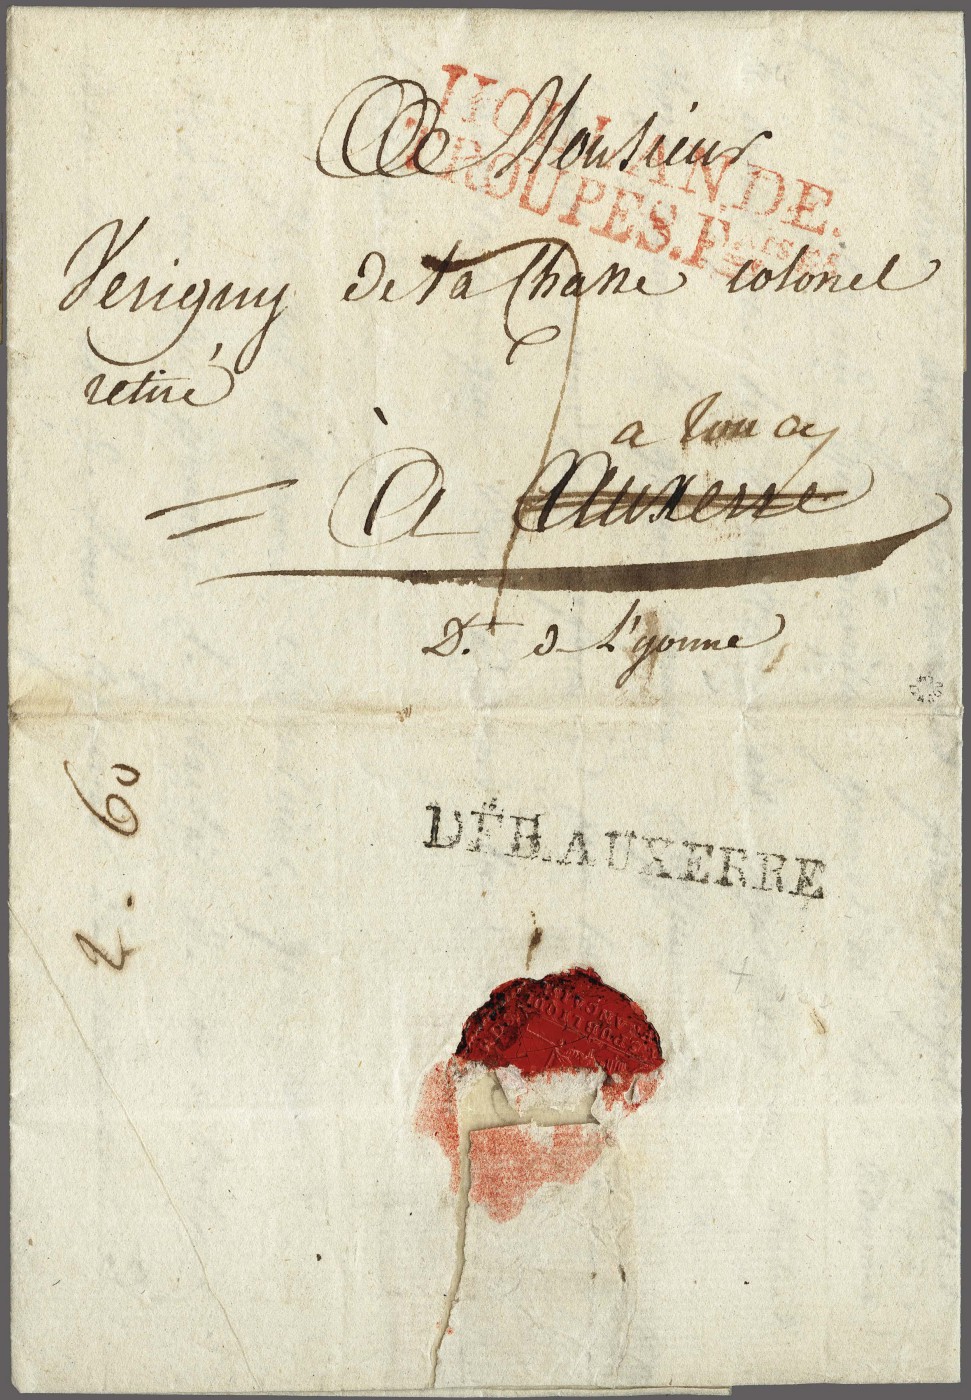 HOLLANDE.
TROUPES.F
A Monsieur
Verigny de la Chasse colonel
retiré
a toucy
À Auxerre
Dt. de L'yonne
2.60
DÉB.AUXERRE